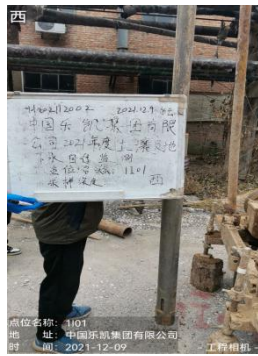 西
2021.12.9
中国乐凯集团有限
公司2021年度土壤及地
下水自行监测
点位名称：1J01
采样深度 西
点位名称：1J01
地 址：中国乐凯集团有限公司
时 间：2021-12-09
工程相机